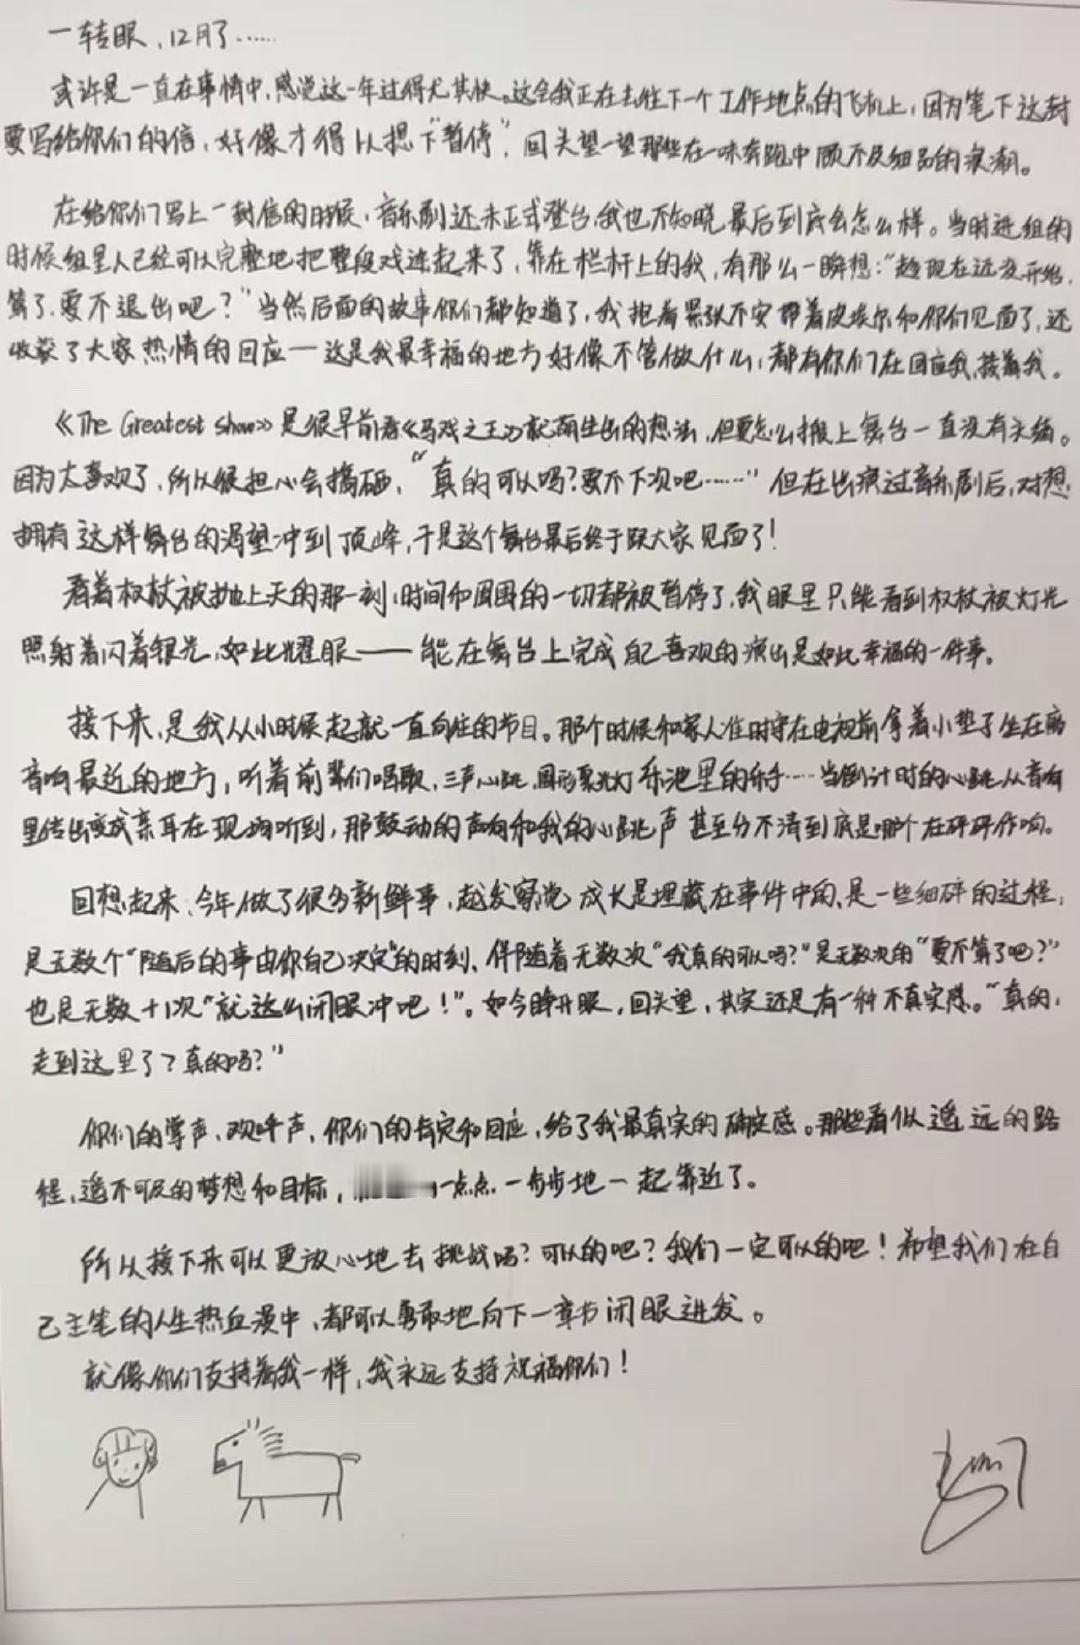 一转眼,12月了……
或许是一直在事情中,感觉这一年过得尤其快。这会我正在去往下一个工作地点的飞机上,因为笔下这封
要写给你们的信,好像才得以摁下“暂停”,回头望一望那些在一味奔跑中顾不及细品的浪潮。
在给你们写上一封信的时候,音乐剧还未正式登台,我也不知晓最后到底会怎么样。当时进组的
时候组里人已经可以完整地把整段戏连起来了,靠在栏杆上的我,有那么一瞬想:“趁现在还没开始,
算了,要不退出吧?”当然后面的故事你们都知道了,我抱着紧张不安带着皮埃尔和你们见面了,还
收获了大家热情的回应—这是我最幸福的地方好像不管做什么,都有你们在回应我,接着我。
《The Greatest Show》是很早前看《马戏之王》就萌生出的想法,但要怎么搬上舞台一直没有头绪。
因为太喜欢了,所以很担心会搞砸,“真的可以吗?要不下次吧……”但在出演过音乐剧后,对想
拥有这样舞台的渴望冲到顶峰,于是这个舞台最后终于跟大家见面了!
看着权杖被抛上天的那一刻,时间和周围的一切都被暂停了,我眼里只能看到权杖被灯光
照射着闪着银光,如此耀眼——能在舞台上完成自己喜欢的演出是如此幸福的一件事。
接下来,是我从小时候起就一直向往的节目。那个时候和家人准时守在电视前拿着小垫子坐在离
音响最近的地方,听着前辈们唱歌,三声心跳,圆形聚光灯乐池里的乐手……当倒计时的心跳从音响
里传出变成亲耳在现场听到,那鼓动的声响和我的心跳声甚至分不清到底是哪个在砰砰作响。
回想起来,今年做了很多新鲜事,越发察觉成长是埋藏在事件中的,是一些细碎的过程,
是无数个“随后的事由你自己决定”的时刻、伴随着无数次“我真的可以吗?”是无数次的“要不算了吧?”
也是无数+1次“就这么闭眼冲吧!”。如今睁开眼,回头望,其实还是有一种不真实感。“真的,
走到这里了?真的吗?”
你们的掌声,欢呼声,你们的肯定和回应,给了我最真实的确定感。那些看似遥远的路
程,遥不可及的梦想和目标,一点点,一步步地一起靠近了。
所以接下来可以更放心地去挑战吗?可以的吧?我们一定可以的吧!希望我们在自
己主笔的人生热血漫中,都可以勇敢地向下一章节闭眼进发。
就像你们支持着我一样,我永远支持祝福你们!